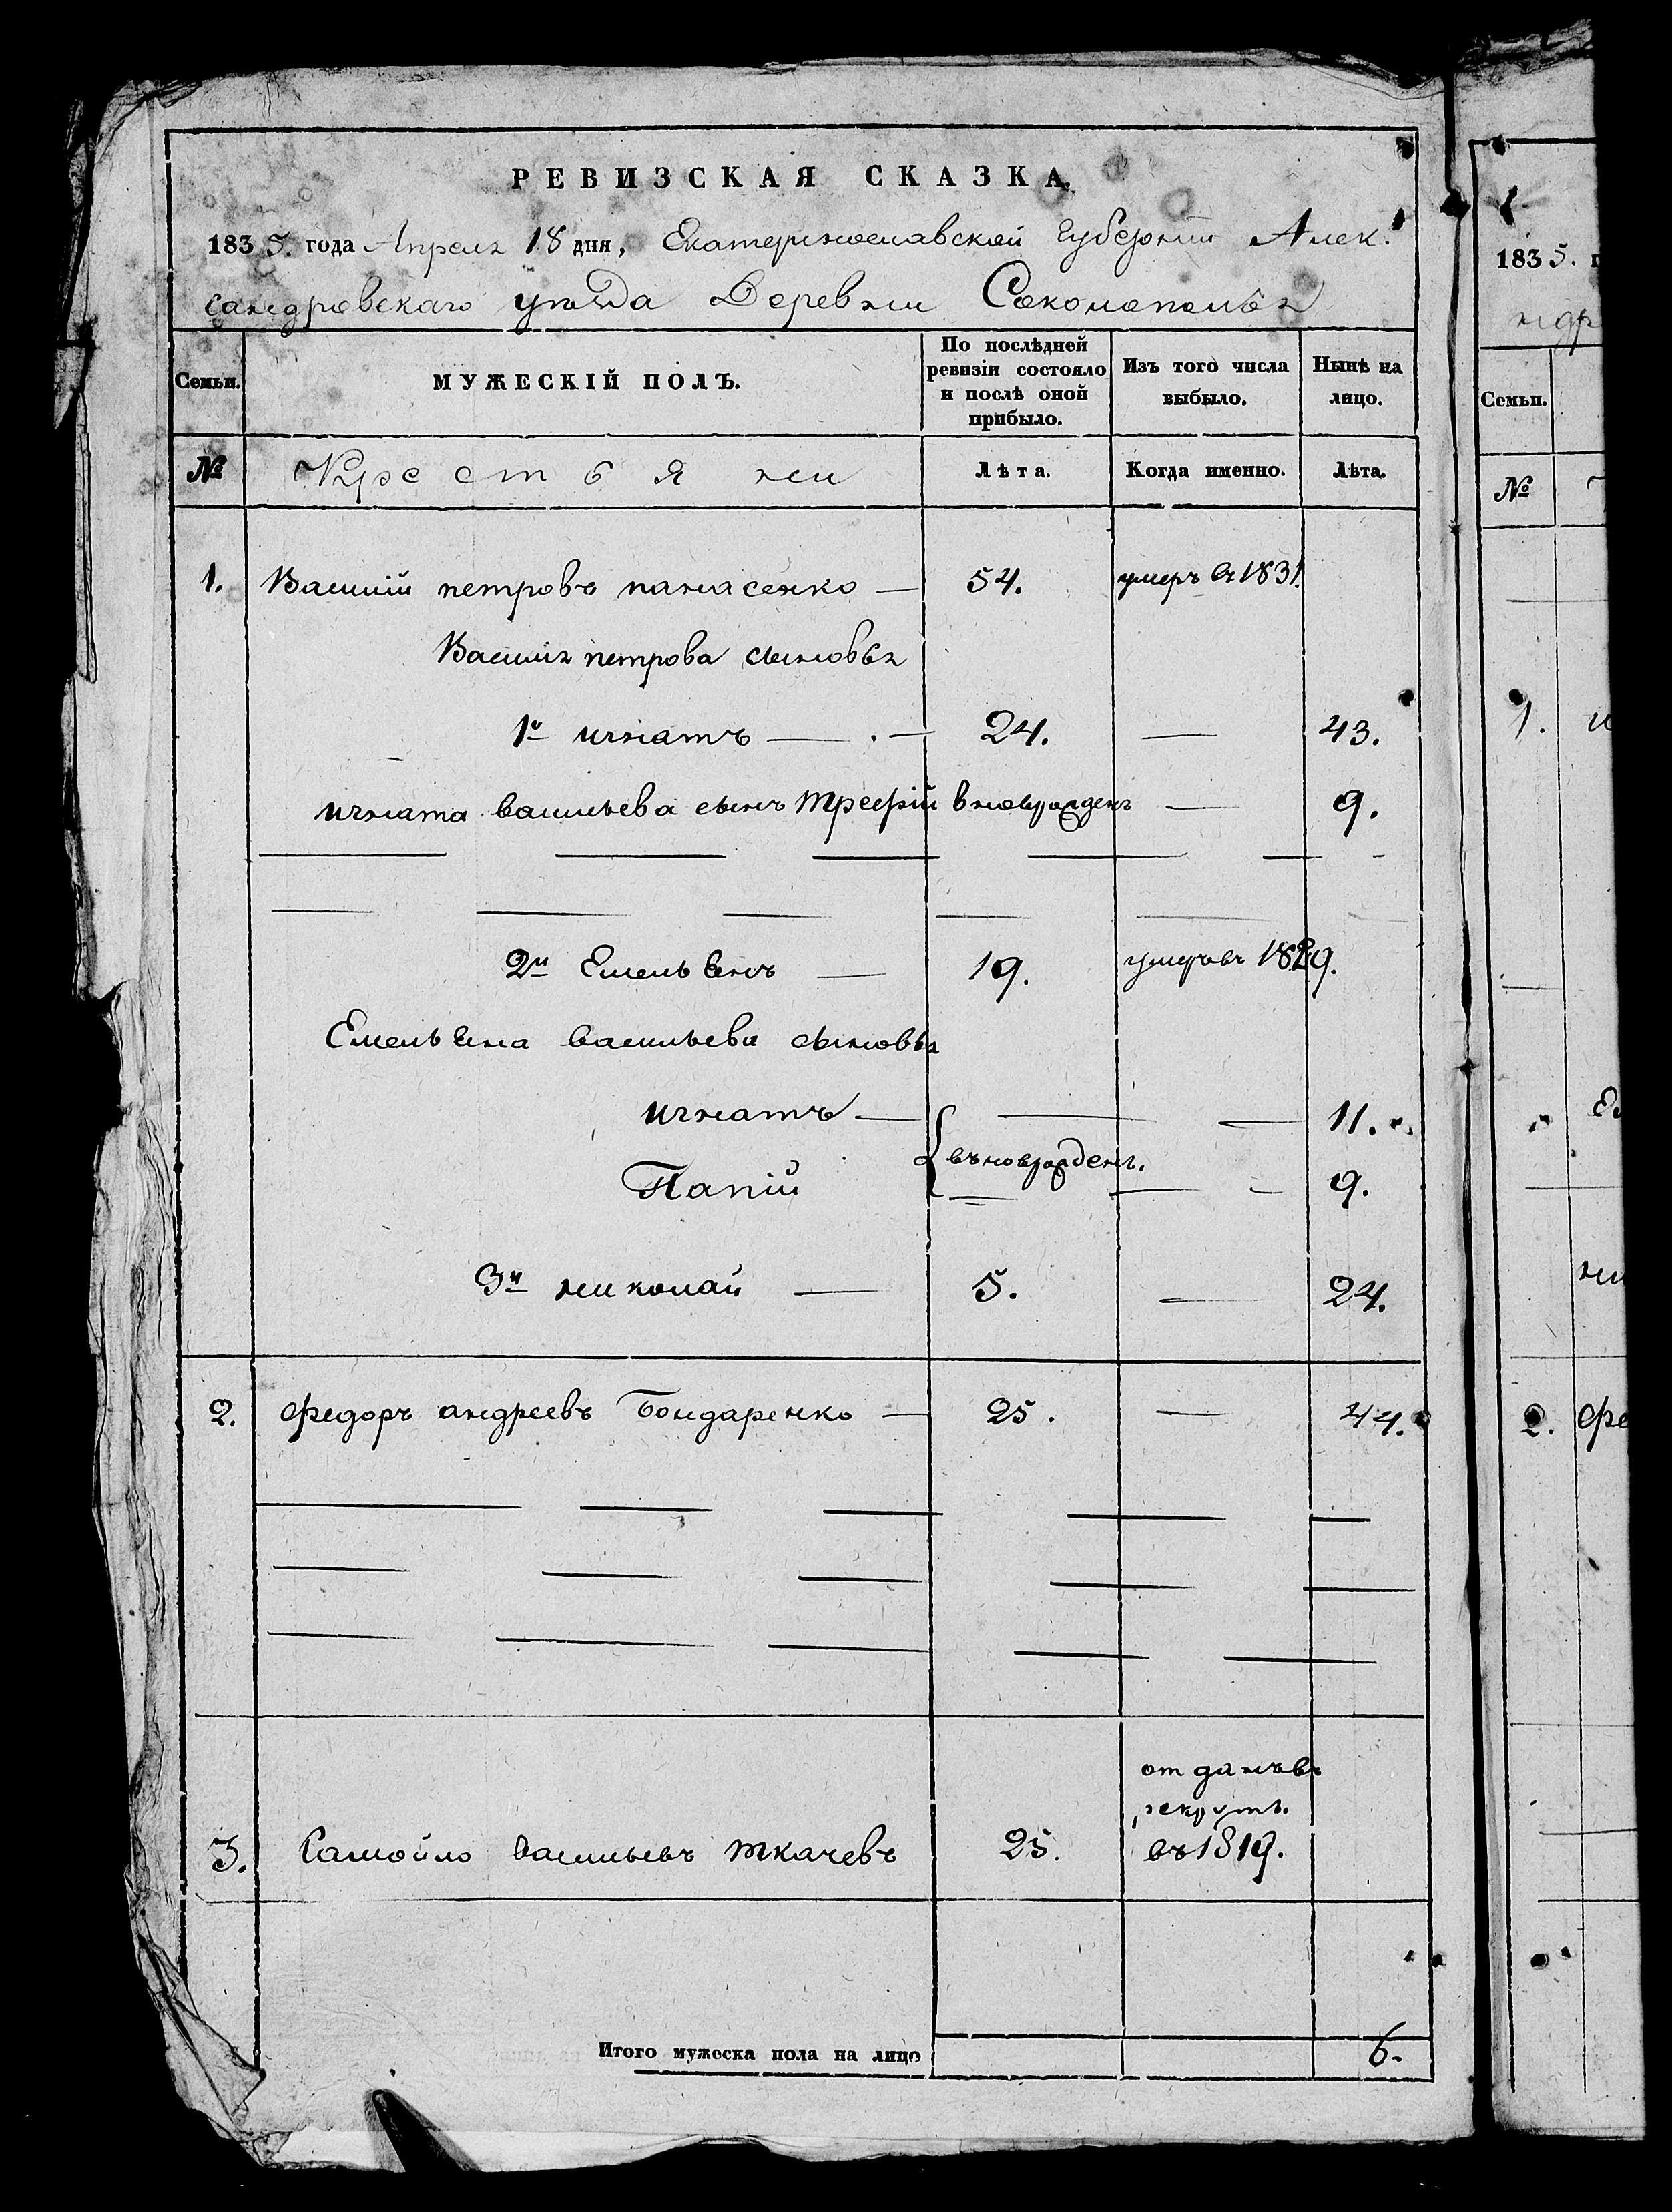 РЕВИЗСКАЯ СКАЗКА.
1835. года Апреля 18 дня, Екатеринославской Губернии Алек:
сандровскаго уезда Деревни
Семьи. МУЖЕСКІЙ ПОЛЪ. По послѣдней ревизіи состояло и послѣ оной прибыло. Изъ того числа выбыло. Нынѣ на лицо.
№ Крестьяни Лѣта. Когда именно. Лѣта.
1. Василій петровъ панасенко — 54. умеръ въ 1831.
Василія петрова сыновья
1й игнатъ — 24. — 43.
игната васильева сынъ вновърожденъ — 9.
2й Емельянъ — 19. умеръ въ 1829.
Емельяна васильева сыновья
игнатъ — — — 11.
вьновърожденъ.
Папій — — 9.
3й николай — 5. — 24.
2. федоръ андреевъ Бондаренко — 25. — 44.
отданъ въ
рекруты
3. Самойло васильевъ ткачевъ 25. въ 1819.
Итого мужеска пола на лицо 6.
1835. г
ндр
Семьи.
№
1. и
Ем
ни
2. фе